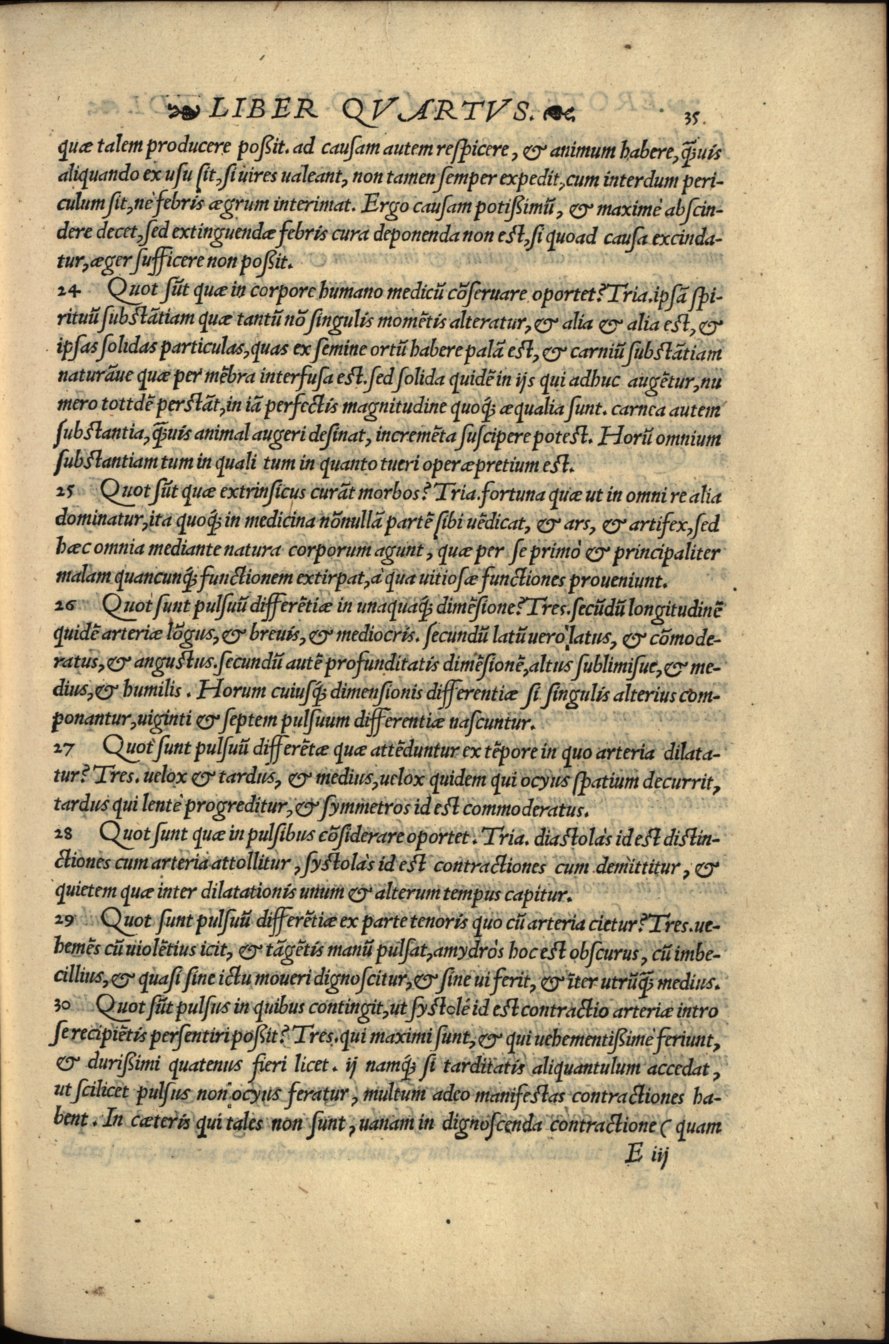 LIBER QVARTVS. 35
quæ talem producere poßit. ad causam autem respicere, & animum habere, q̃uis
aliquando ex usu sit, si uires ualeant, non tamen semper expedit, cum interdum peri-
culum sit, nè febris ægrum interimat. Ergo causam potißimũ, & maximè abscin-
dere decet, sed extinguendæ febris cura deponenda non est, si quoad causa excinda-
tur, æger sufficere non poßit.
24 Quot sũt quæ in corpore humano medicũ cõseruare oportet? Tria. ipsã spi-
rituũ substãtiam quæ tantũ nõ singulis momẽtis alteratur, & alia & alia est, &
ipsas solidas particulas, quas ex semine ortũ habere palã est, & carniũ substãtiam
naturãue quæ per mẽbra interfusa est. sed solida quidẽ in ijs qui adhuc augẽtur, nu
mero tottdẽ perstãt, in iã perfectis magnitudine quoq̃ æqualia sunt. carnea autem
substantia, q̃uis animal augeri desinat, incremẽta suscipere potest. Horũ omnium
substantiam tum in quali tum in quanto tueri operæpretium est.
25 Quot sũt quæ extrinsicus curãt morbos? Tria. fortuna quæ ut in omni re alia
dominatur, ita quoq̃ in medicina nõnullã partẽ sibi uẽdicat, & ars, & artifex, sed
hæc omnia mediante natura corporum agunt, quæ per se primò & principaliter
malam quancunq̃ functionem extirpat, à qua uitiosæ functiones proueniunt.
26 Quot sunt pulsuũ differẽtiæ in unaquaq̃ dimẽsione? Tres. secũdũ longitudinẽ
quidẽ arteriæ lõgus, & breuis, & mediocris. secundũ latũ uerò latus, & cõmode-
ratus, & angustus. secundũ autẽ profunditatis dimẽsionẽ, altus sublimisue, & me-
dius, & humilis. Horum cuiusq̃ dimensionis differentiæ si singulis alterius com-
ponantur, uiginti & septem pulsuum differentiæ nascuntur.
27 Quot sunt pulsuũ differẽtæ quæ attẽduntur ex tẽpore in quo arteria dilata-
tur? Tres. uelox & tardus, & medius, uelox quidem qui ocyus spatium decurrit,
tardus qui lentè progreditur, & symmetros id est commoderatus.
28 Quot sunt quæ in pulsibus cõsiderare oportet. Tria. diastolàs id est distin-
ctiones cum arteria attollitur, systolàs id est contractiones cum demittitur, &
quietem quæ inter dilatationis unum & alterum tempus capitur.
29 Quot sunt pulsuũ differẽtiæ ex parte tenoris quo cũ arteria cietur? Tres. ue-
hemẽs cũ uiolẽtius icit, & tãgẽtis manũ pulsat, amydròs hoc est obscurus, cũ imbe-
cillius, & quasi sine ictu moueri dignoscitur, & sine ui ferit, & ĩter utrũq̃ medius.
30 Quot sũt pulsus in quibus contingit, ut systolé id est contractio arteriæ intro
se recipiẽtis persentiri poßit? Tres. qui maximi sunt, & qui uehementißimè feriunt,
& durißimi quatenus fieri licet. ij namq̃ si tarditatis aliquantulum accedat,
ut scilicet pulsus non ocyus feratur, multum adeo manifestas contractiones ha-
bent. In cæteris qui tales non sunt, uanam in dignoscenda contractione ( quam
E iij